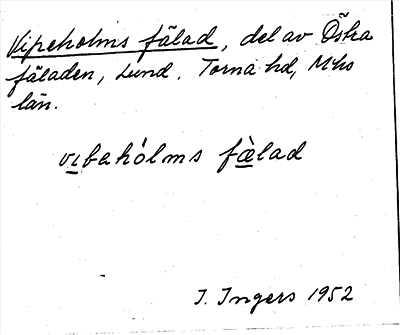 Vipeholms fälad, del av Östra
fäladen, Lund. Torna hd, Mhs
län.
vıbahòlms fæ̀lad
I. Ingers 1952